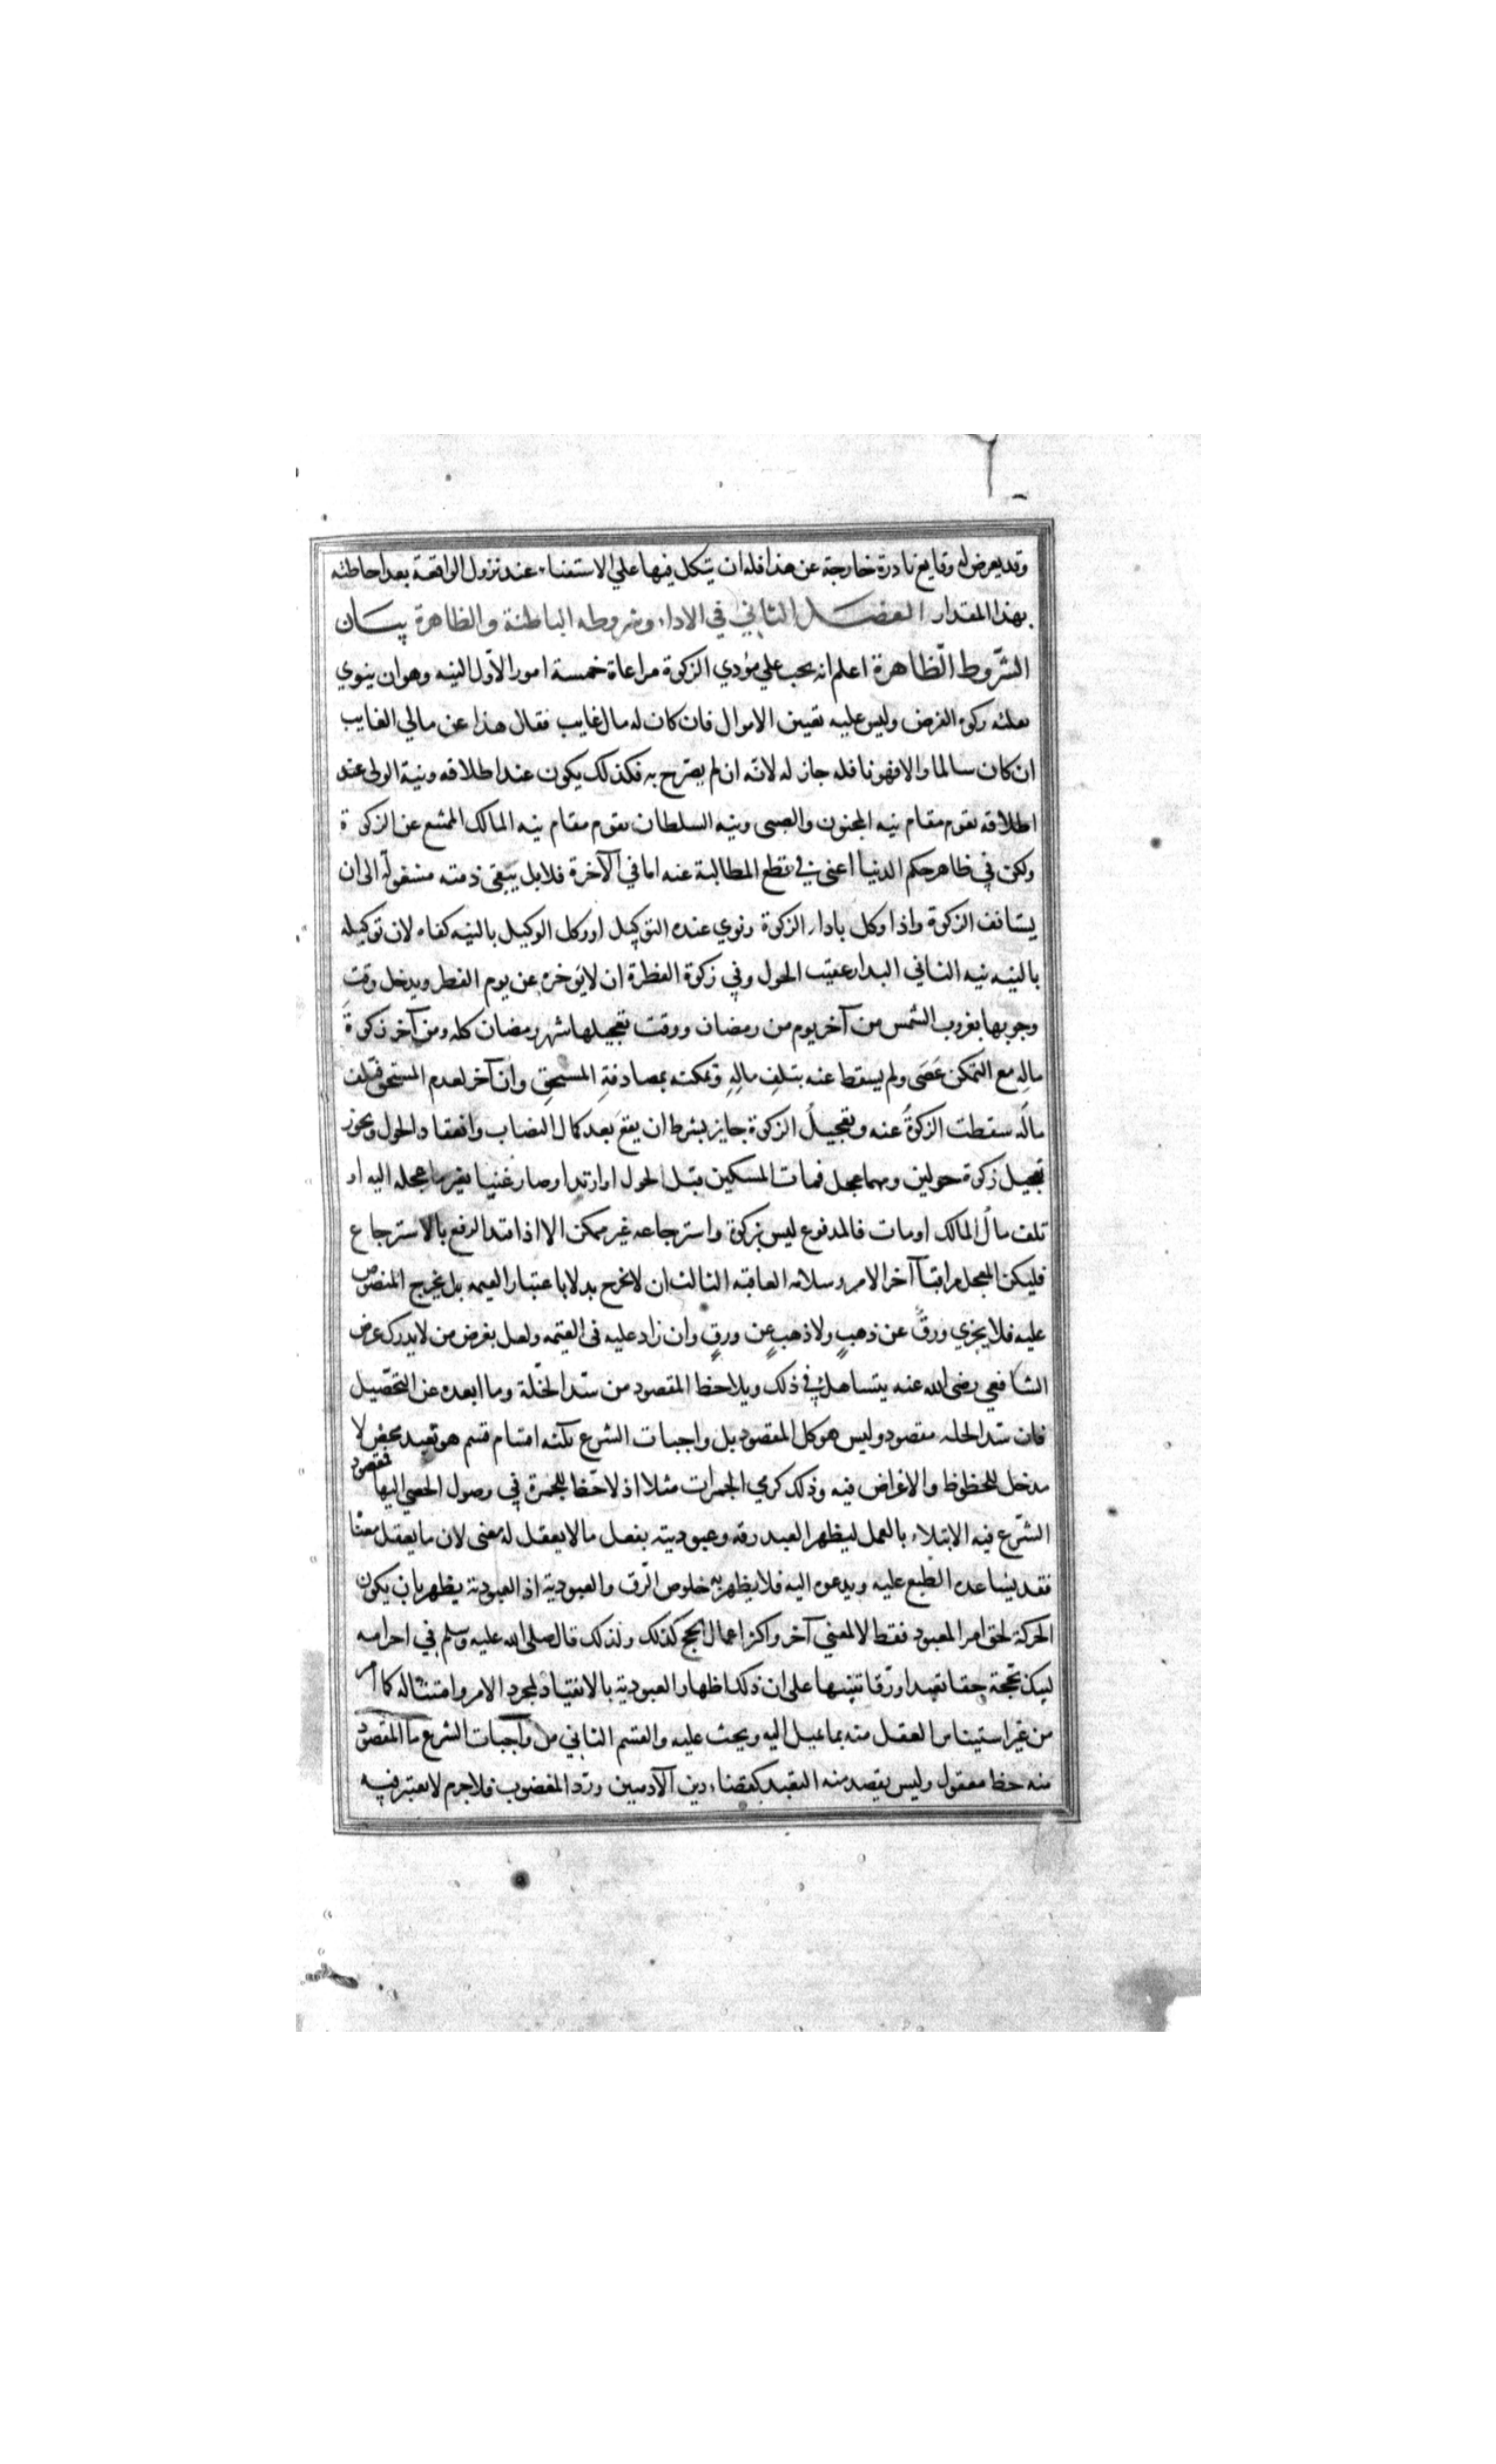 وقد يعرض له وقايع نادرة خارجة عن هذا فله ان يتكل فيها علي الاستفتاء عند نزول الواقعة بعد احاطته
بهذا المقدار الفصل الثاني في الاداء وشروطه الباطنة والظاهرة بيان
الشروط الظاهرة اعلم انه يجب علي مؤدي الزكوة مراعاة خمسة امور الاول النيه وهو ان ينوي
بقلبه زكوة الفرض وليس عليه تعيين الاموال فان كان له مال غايب فقال هذا عن مالي الغايب
ان كان سالما والا فهو نافله جاز له لانه ان لم يصرح به فكذلك يكون عند اطلاقه ونية الولى عند
اطلاقه تقوم مقام نيه المجنون والصبى ونيه السلطان تقوم مقام نيه المالك الممتنع عن الزكوة
ولكن في ظاهر حكم الدنيا اعنى في قطع المطالبة عنه اما في الآخرة فلا بل يبقى ذمته مشغولة الى ان
يستانف الزكوة واذا وكل باداء الزكوة ونوي عنده التوكيل او وكل الوكيل بالنيه كفاه لان توكيله
بالنيه نيه الثاني البدار عقيب الحول وفي زكوة الفطرة ان لا يوخره عن يوم الفطر ويدخل وقت
وجوبها بغروب الشمس من آخر يوم من رمضان ووقت تعجيلها شهر رمضان كله ومن آخر زكوة
ماله مع التمكن عصى ولم يسقط عنه بتلف ماله وتمكنه بمصادفة المستحق وان آخر لعدم المستحق فتلف
ماله سقطت الزكوة عنه وتعجيل الزكوة جايز بشرط ان يقع بعد كمال النصاب وانعقاد الحول ويجوز
تعجيل زكوة حولين ومهما عجل فمات المسكين قبل الحول او ارتد او صار غنيا بغير ما عجله اليه او
تلف مال المالك او مات فالمدفوع ليس بزكوة واسترجاعه غير ممكن الا اذا قيد الدفع بالاسترجاع
فليكن المعجل مراقبا آخر الامر وسلامه العاقبه الثالث ان لا يخرج بدلا باعتبار القيمه بل يخرج المنصوص
عليه فلا يجزي ورق عن ذهب ولا ذهب عن ورق وان زاد عليه فى القيمه ولعل بعض من لا يدرك غرض
الشافعي رضى الله عنه يتساهل في ذلك ويلاحظ المقصود من سد الخلة وما ابعده عن التحصيل
فان سد الخله مقصود وليس هو كل المقصود بل واجبات الشرع ثلثه اقسام قسم هو تعبد محض لا
مدخل للحظوظ والاغراض فيه وذلك كرمي الجمرات مثلا اذ لا حظ للجمرة في وصول الحصي اليها فمقصود
الشرع فيه الابتلاء بالعمل ليظهر العبد رقه وعبوديته بفعل ما لا يعقل له معنى لان ما يعقل معناه
فقد يساعده الطبع عليه ويدعوه اليه فلا يظهر به خلوص الرق والعبودية اذ العبودية يظهر بان يكون
الحركة لحق امر المعبود فقط لا لمعني آخر واكثر اعمال الحج كذلك ولذلك قال صلى الله عليه وسلم في احرامه
لبيك بحجة حقا تعبدا ورقا تنبيها على ان ذلك اظهار العبودية بالانقياد لمجرد الامر وامتثاله كما امر
من غير استيناس العقل منه بما يميل اليه ويحث عليه والقسم الثاني من واجبات الشرع ما المقصود
منه حظ معقول وليس يقصد منه التعبد كقضاء دين الآدميين ورد المغضوب فلا جرم لا يعتبر فيه